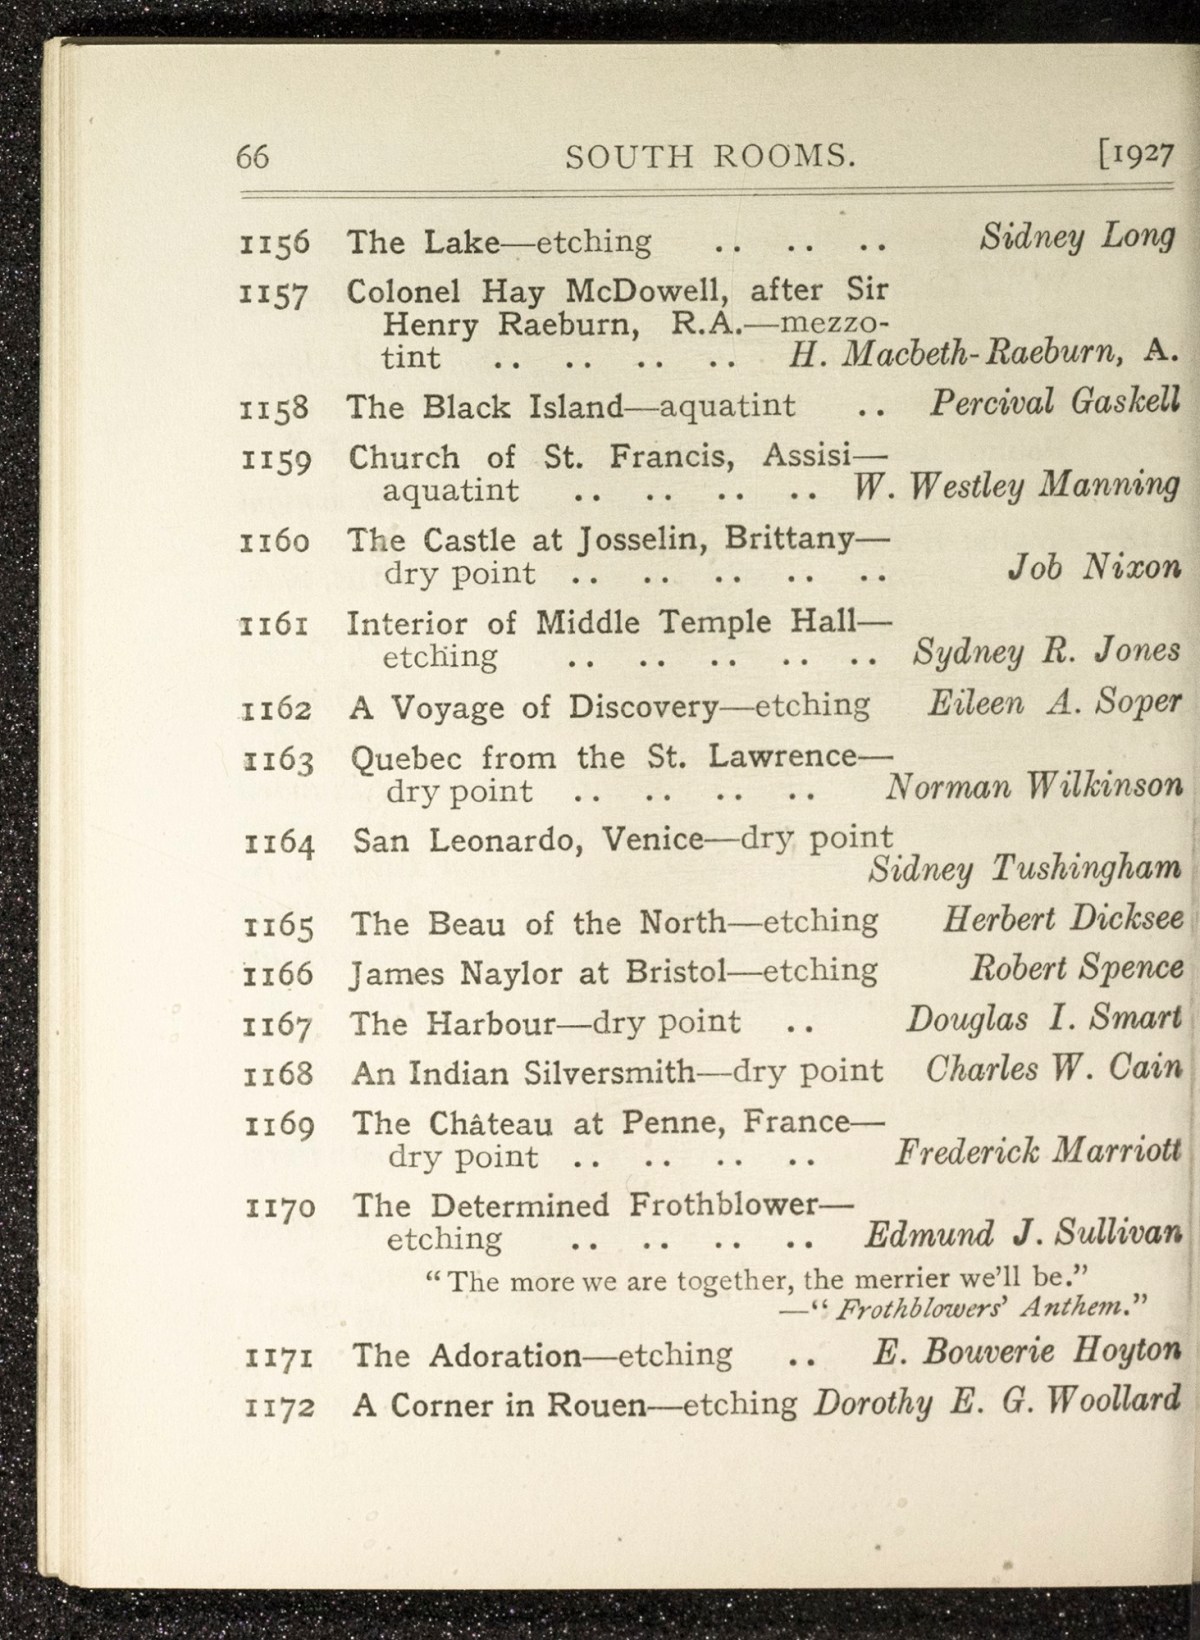 66 SOUTH ROOMS. [1927
1156 The Lake—etching .. .. .. Sidney Long
1157 Colonel Hay McDowell, after Sir
Henry Raeburn, R.A.—mezzo-
tint .. .. .. .. H. Macbeth-Raeburn, A.
1158 The Black Island—aquatint .. Percival Gaskell
1159 Church of St. Francis, Assisi—
aquatint .. .. .. .. W. Westley Manning
1160 The Castle at Josselin, Brittany—
dry point .. .. .. .. .. Job Nixon
1161 Interior of Middle Temple Hall—
etching .. .. .. .. .. Sydney R. Jones
1162 A Voyage of Discovery—etching Eileen A. Soper
1163 Quebec from the St. Lawrence—
dry point .. .. .. .. Norman Wilkinson
1164 San Leonardo, Venice—dry point
Sidney Tushingham
1165 The Beau of the North—etching Herbert Dicksee
1166 James Naylor at Bristol—etching Robert Spence
1167 The Harbour—dry point .. Douglas I. Smart
1168 An Indian Silversmith—dry point Charles W. Cain
1169 The Château at Penne, France—
dry point .. .. .. .. Frederick Marriott
1170 The Determined Frothblower—
etching .. .. .. .. Edmund J. Sullivan
“The more we are together, the merrier we’ll be.”
—“Frothblowers’ Anthem.”
1171 The Adoration—etching .. E. Bouverie Hoyton
1172 A Corner in Rouen—etching Dorothy E. G. Woollard